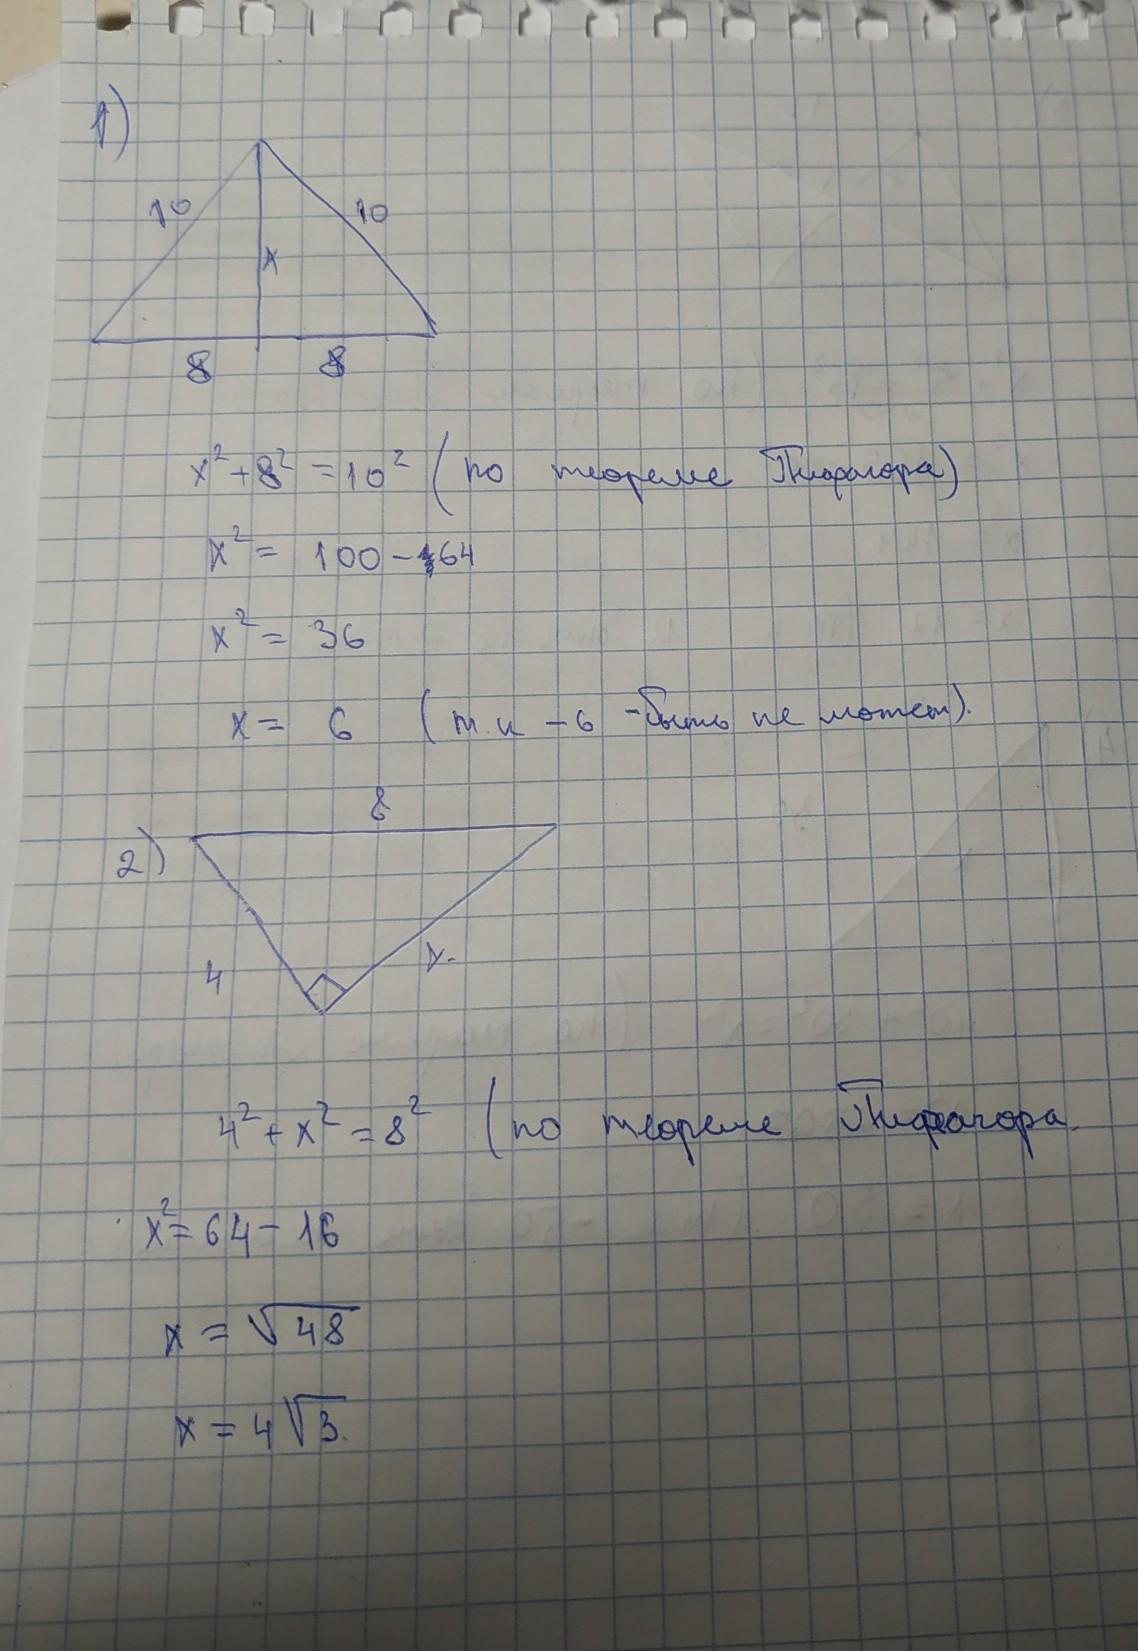 1)
10
10
x
8
8
x² + 8² = 10² (по теореме Пифагора)
x² = 100 - 64
x² = 36
x = 6 (т.к -6 - быть не может).
8
2)
4
x
4² + x² = 8² (по теореме Пифагора.
x² = 64 - 16
x = √48
x = 4√3.